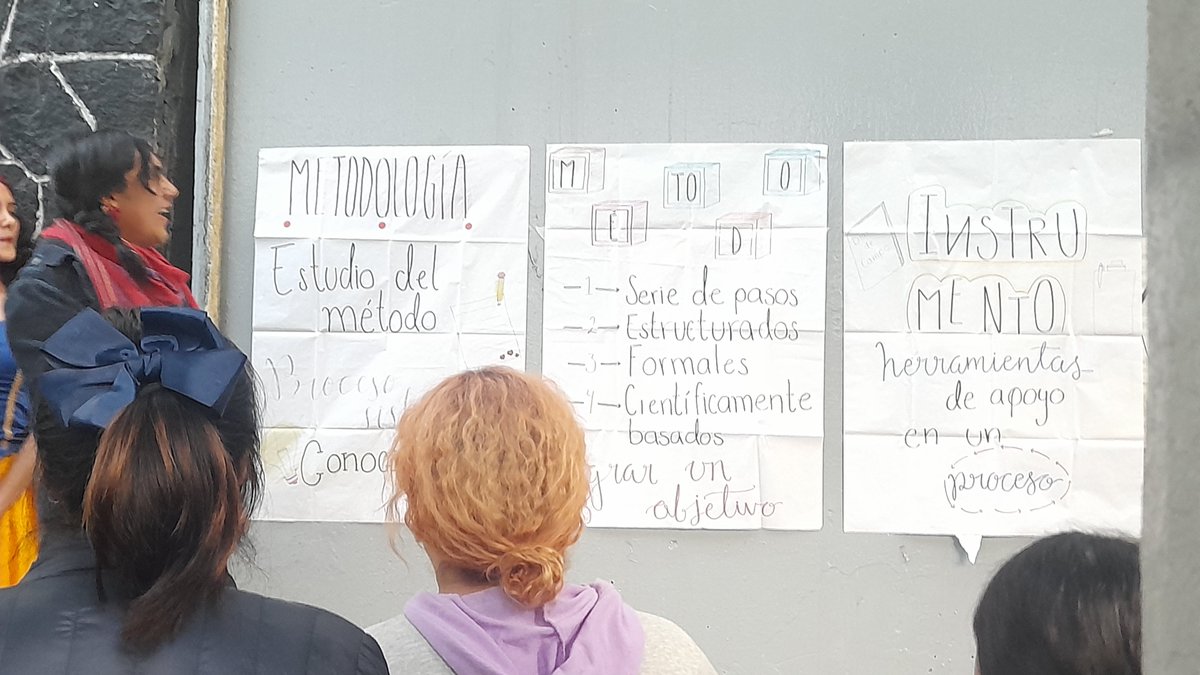 METODOLOGÍA
Estudio del
método
Proceso
MÉTODO
1 → Serie de pasos
2 → Estructurados
3 → Formales
4 → Científicamente
basados
un
objetivo
INSTRU
MENTO
herramientas
de apoyo
en un
proceso